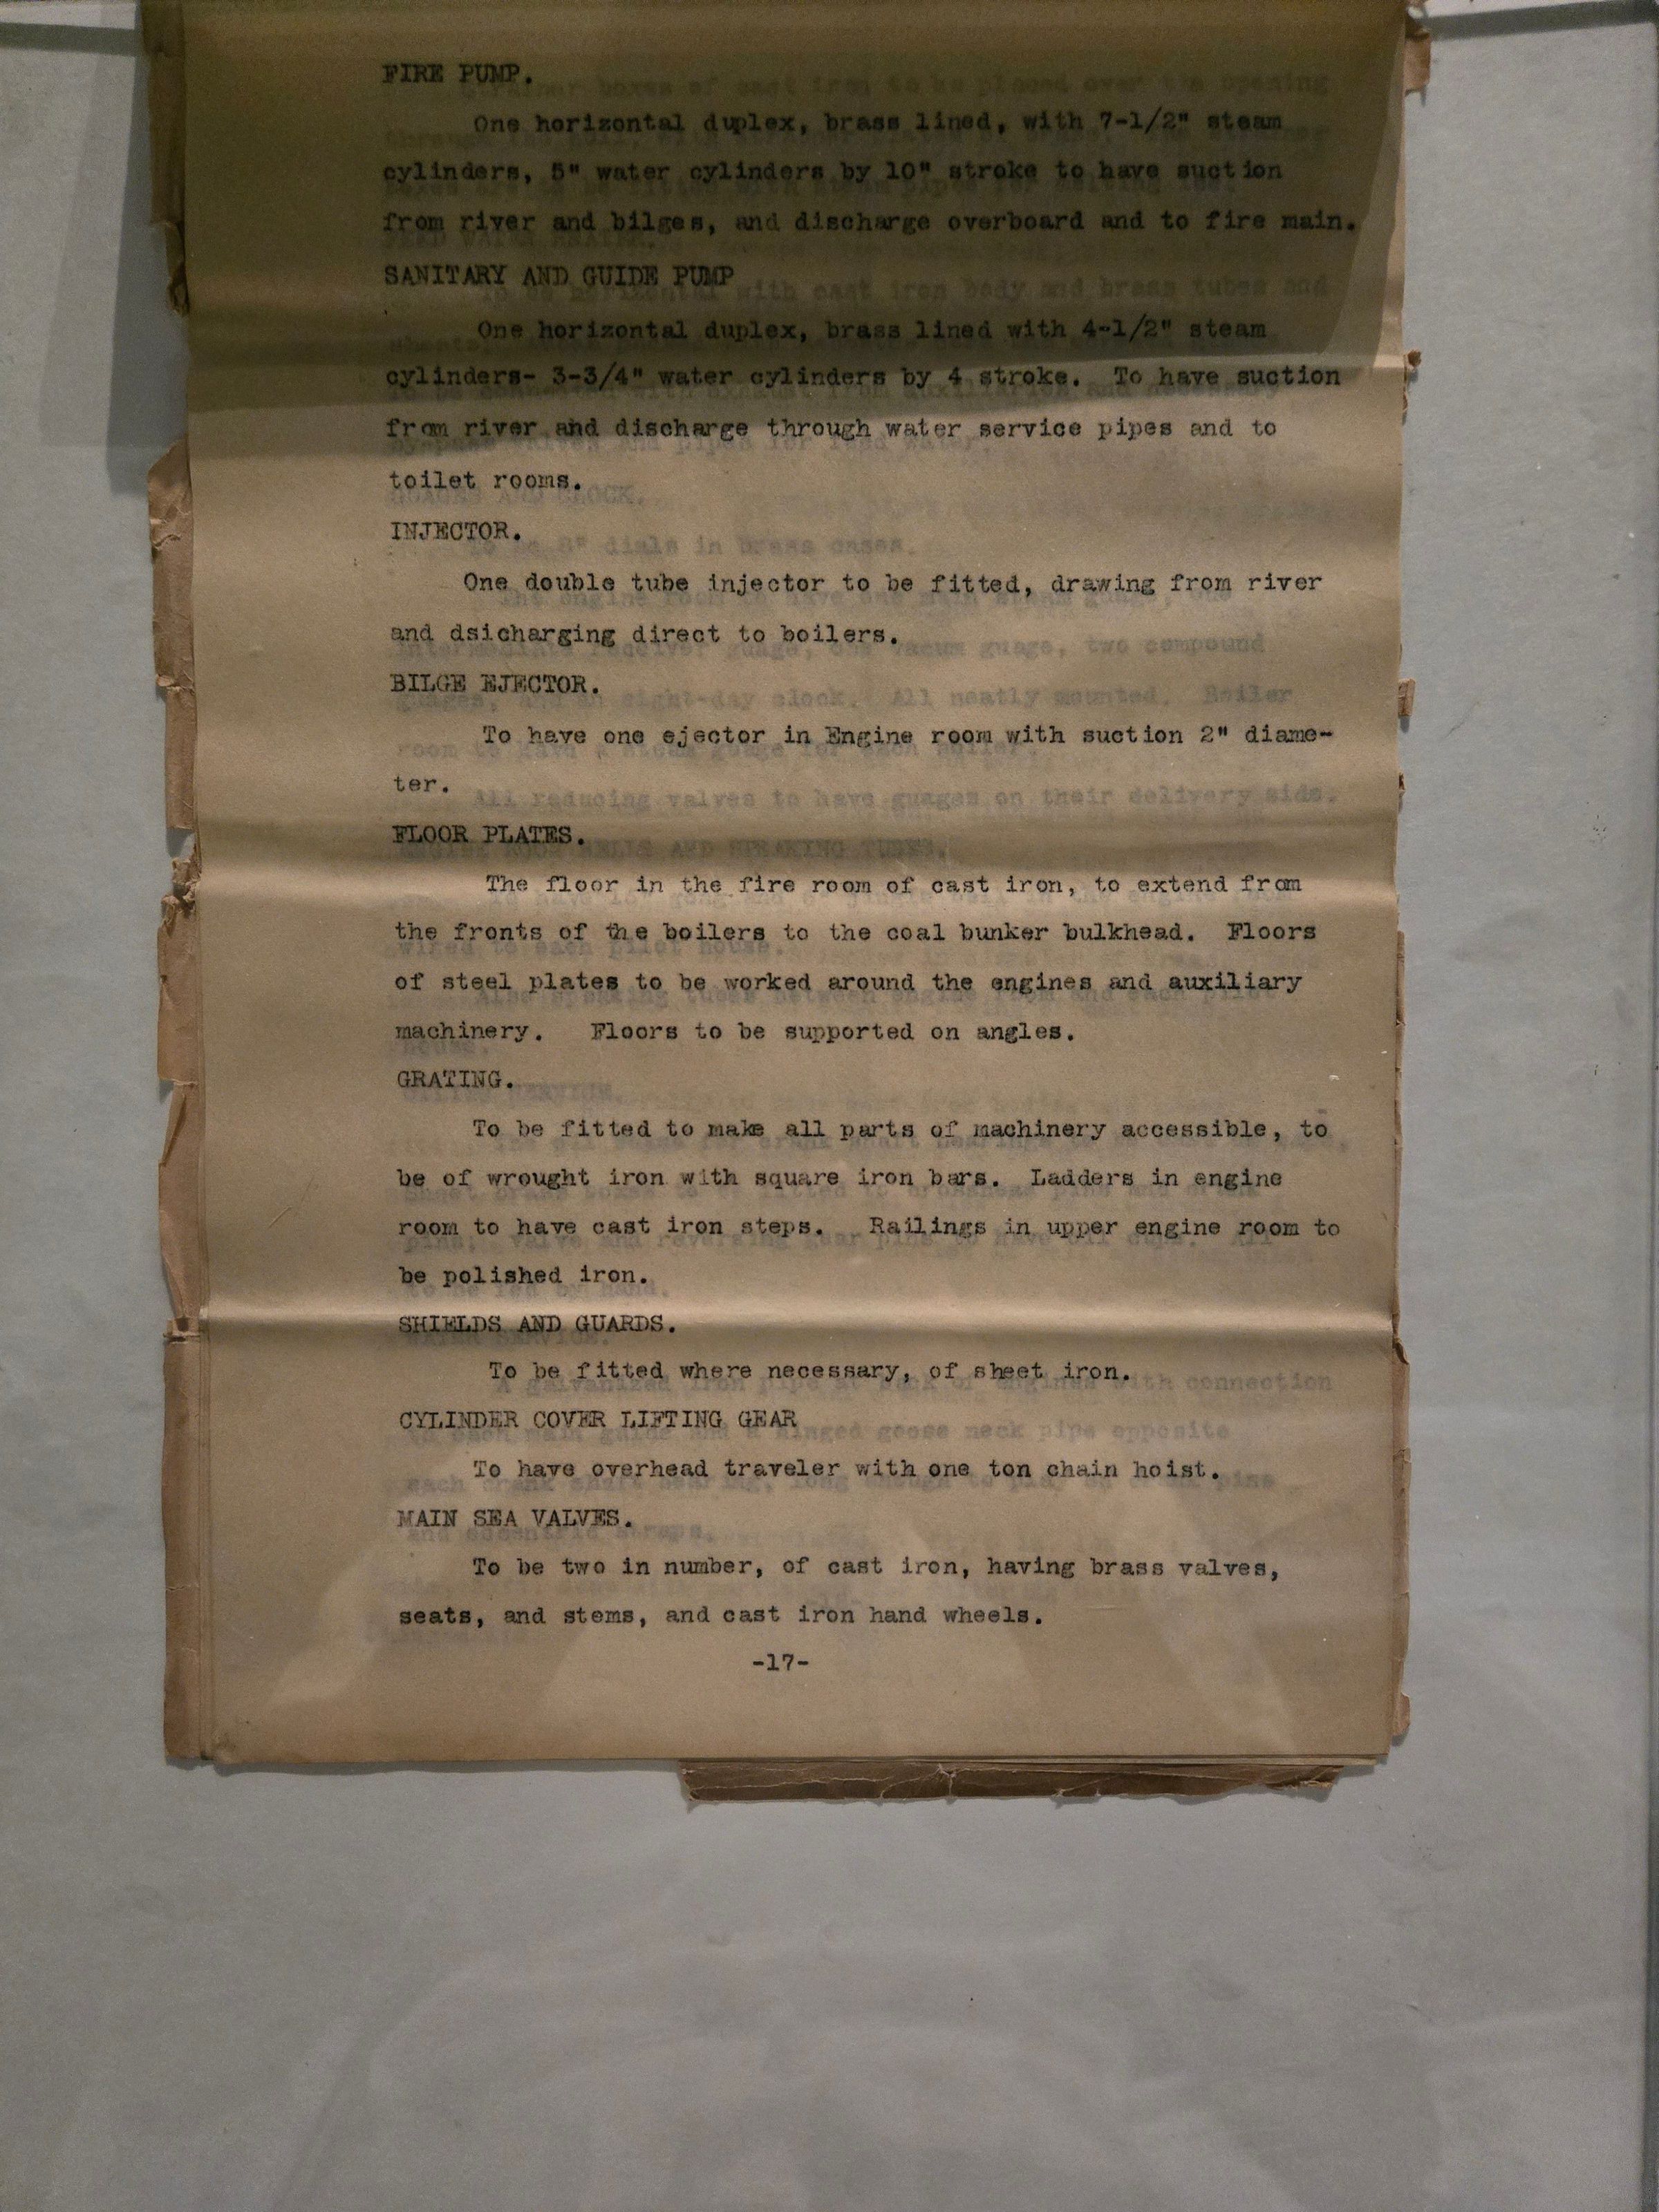 FIRE PUMP.
One horizontal duplex, brass lined, with 7-1/2" steam
cylinders, 5" water cylinders by 10" stroke to have suction
from river and bilges, and discharge overboard and to fire main.
SANITARY AND GUIDE PUMP
One horizontal duplex, brass lined with 4-1/2" steam
cylinders- 3-3/4" water cylinders by 4 stroke. To have suction
from river and discharge through water service pipes and to
toilet rooms.
INJECTOR.
One double tube injector to be fitted, drawing from river
and dsicharging direct to boilers.
BILGE EJECTOR.
To have one ejector in Engine room with suction 2" diame-
ter.
FLOOR PLATES.
The floor in the fire room of cast iron, to extend from
the fronts of the boilers to the coal bunker bulkhead. Floors
of steel plates to be worked around the engines and auxiliary
machinery. Floors to be supported on angles.
GRATING.
To be fitted to make all parts of machinery accessible, to
be of wrought iron with square iron bars. Ladders in engine
room to have cast iron steps. Railings in upper engine room to
be polished iron.
SHIELDS AND GUARDS.
To be fitted where necessary, of sheet iron.
CYLINDER COVER LIFTING GEAR
To have overhead traveler with one ton chain hoist.
MAIN SEA VALVES.
To be two in number, of cast iron, having brass valves,
seats, and stems, and cast iron hand wheels.
-17-